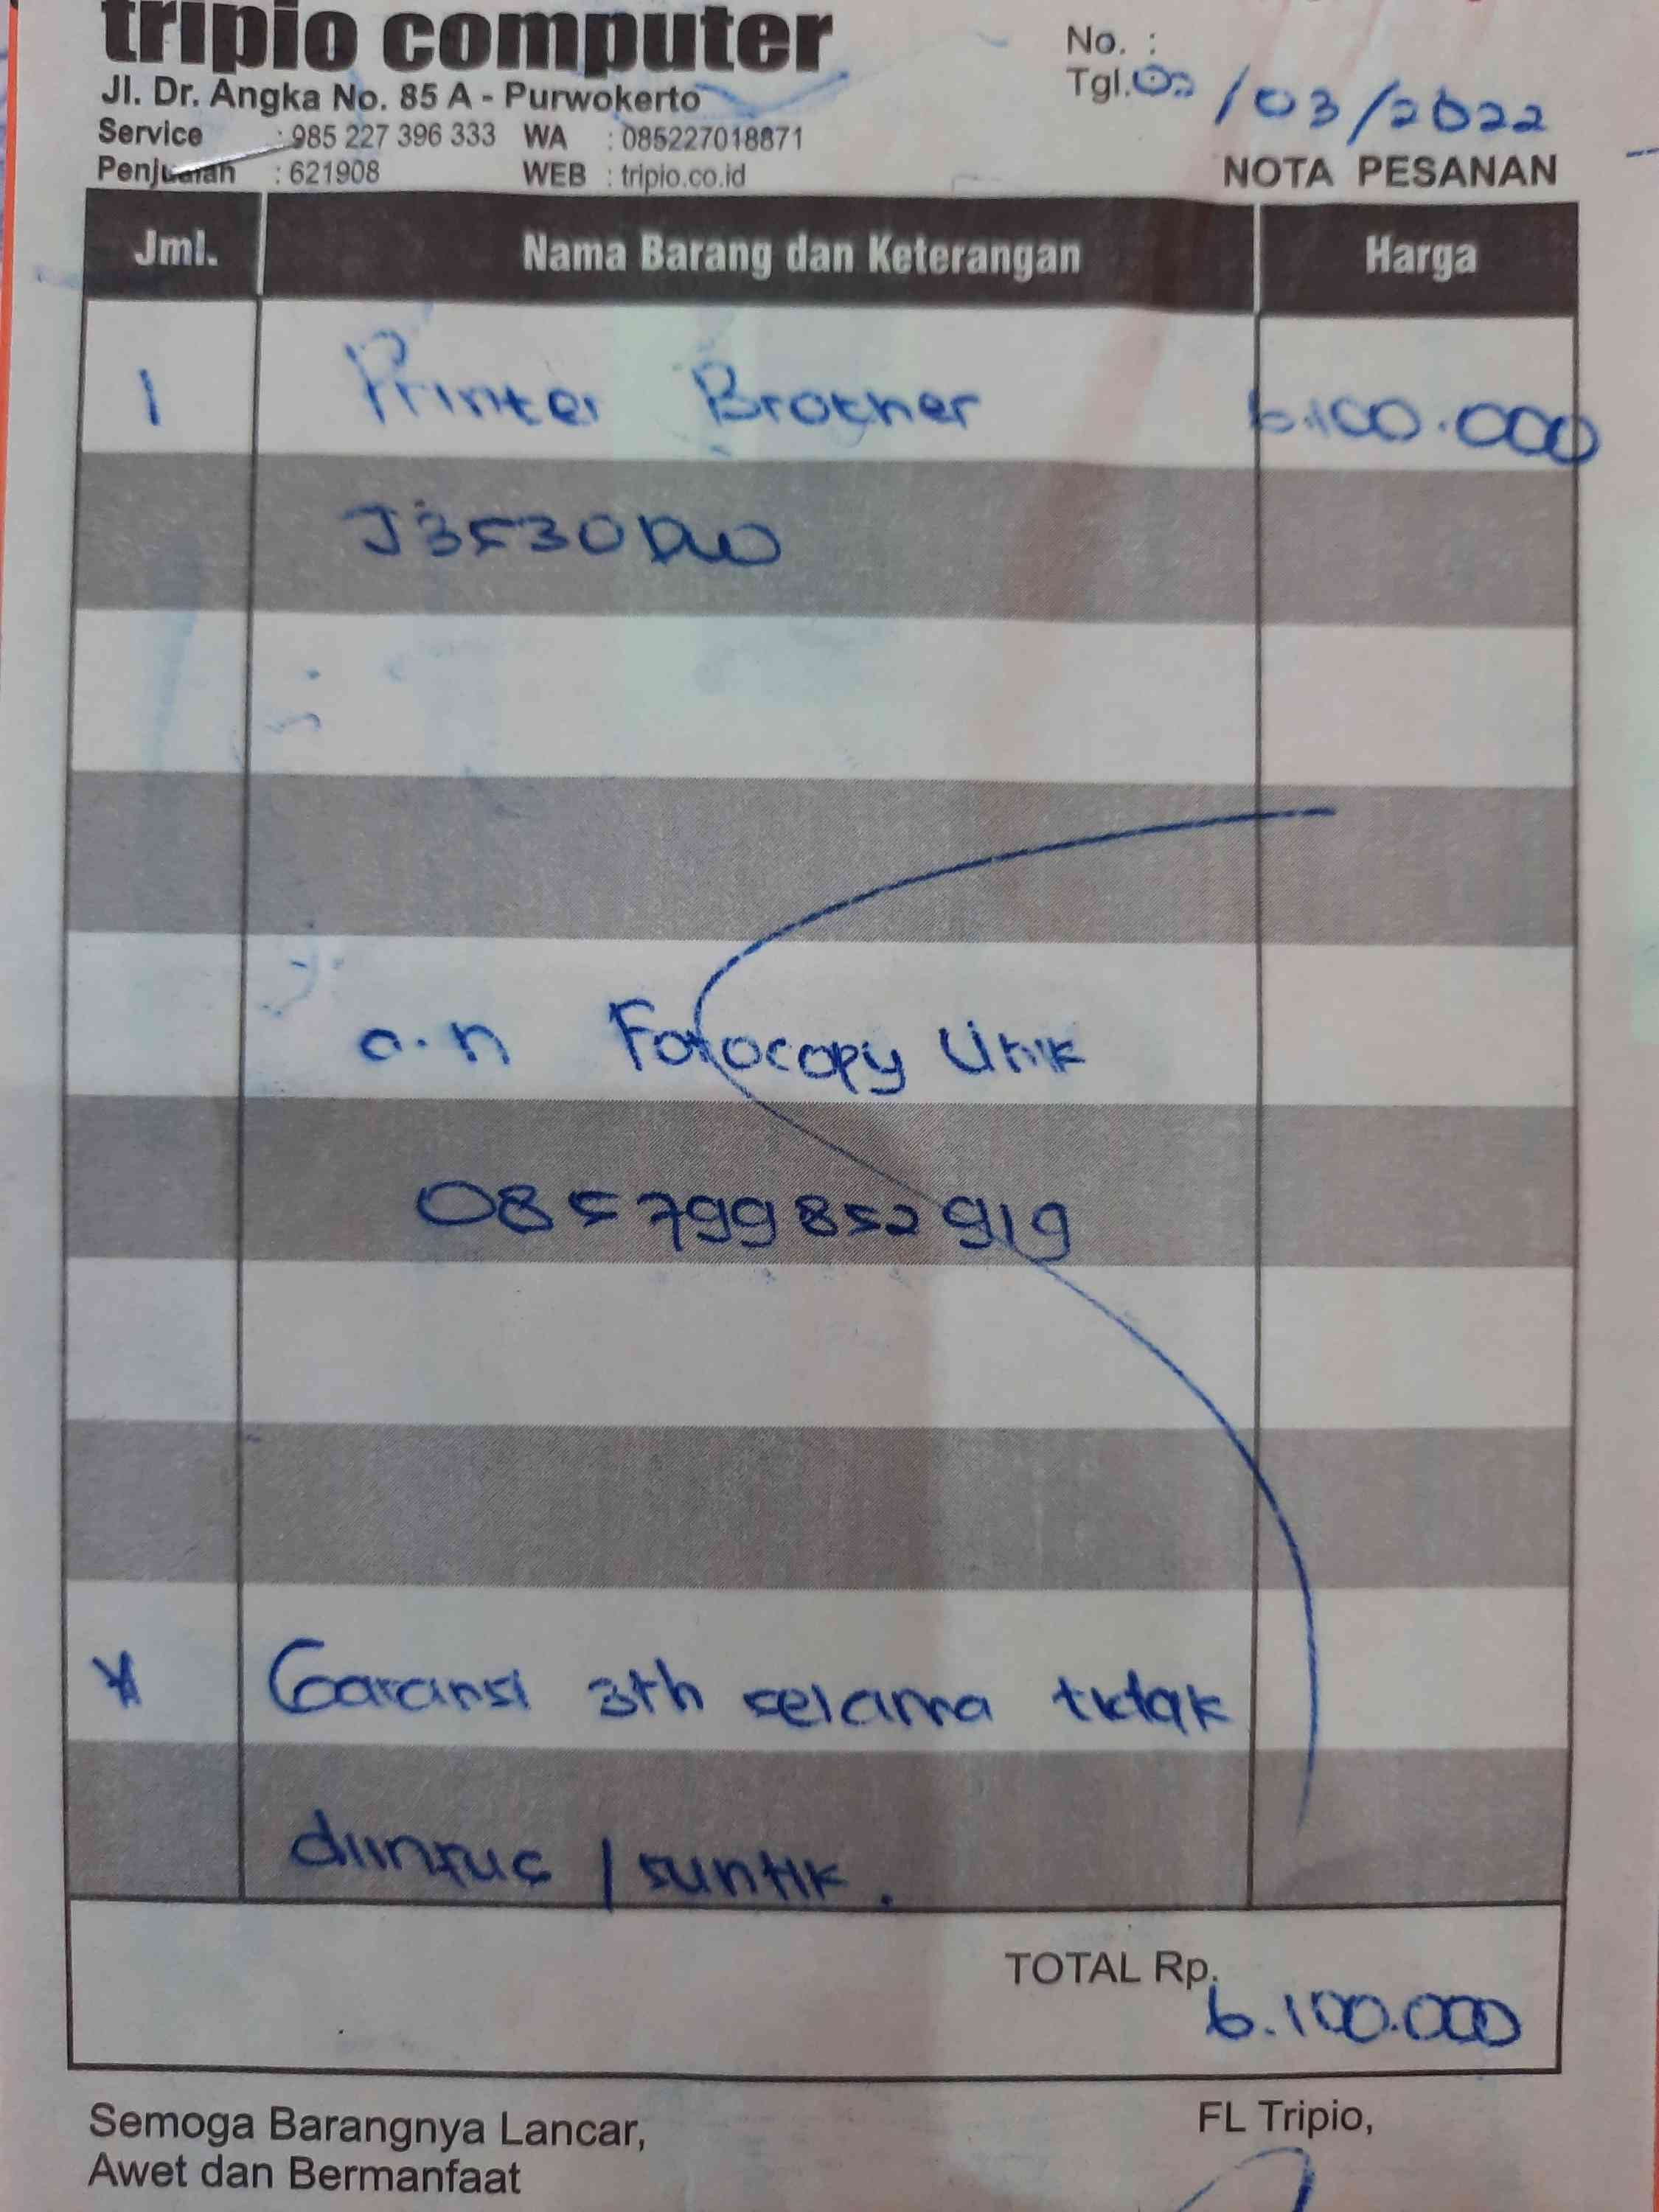 tripio computer
Jl. Dr. Angka No. 85 A - Purwokerto
Service : 085 227 396 333 WA : 085227018871
Penjualan : 621908 WEB : tripio.co.id
No. :
Tgl. /03/2022
NOTA PESANAN
Jml. Nama Barang dan Keterangan Harga
1 Printer Brother 6.100.000
J3530DW
a.n Fotocopy Unik
085799852919
* Garansi 3th selama tidak
diinfus / suntik.
TOTAL Rp. 6.100.000
Semoga Barangnya Lancar,
Awet dan Bermanfaat
FL Tripio,